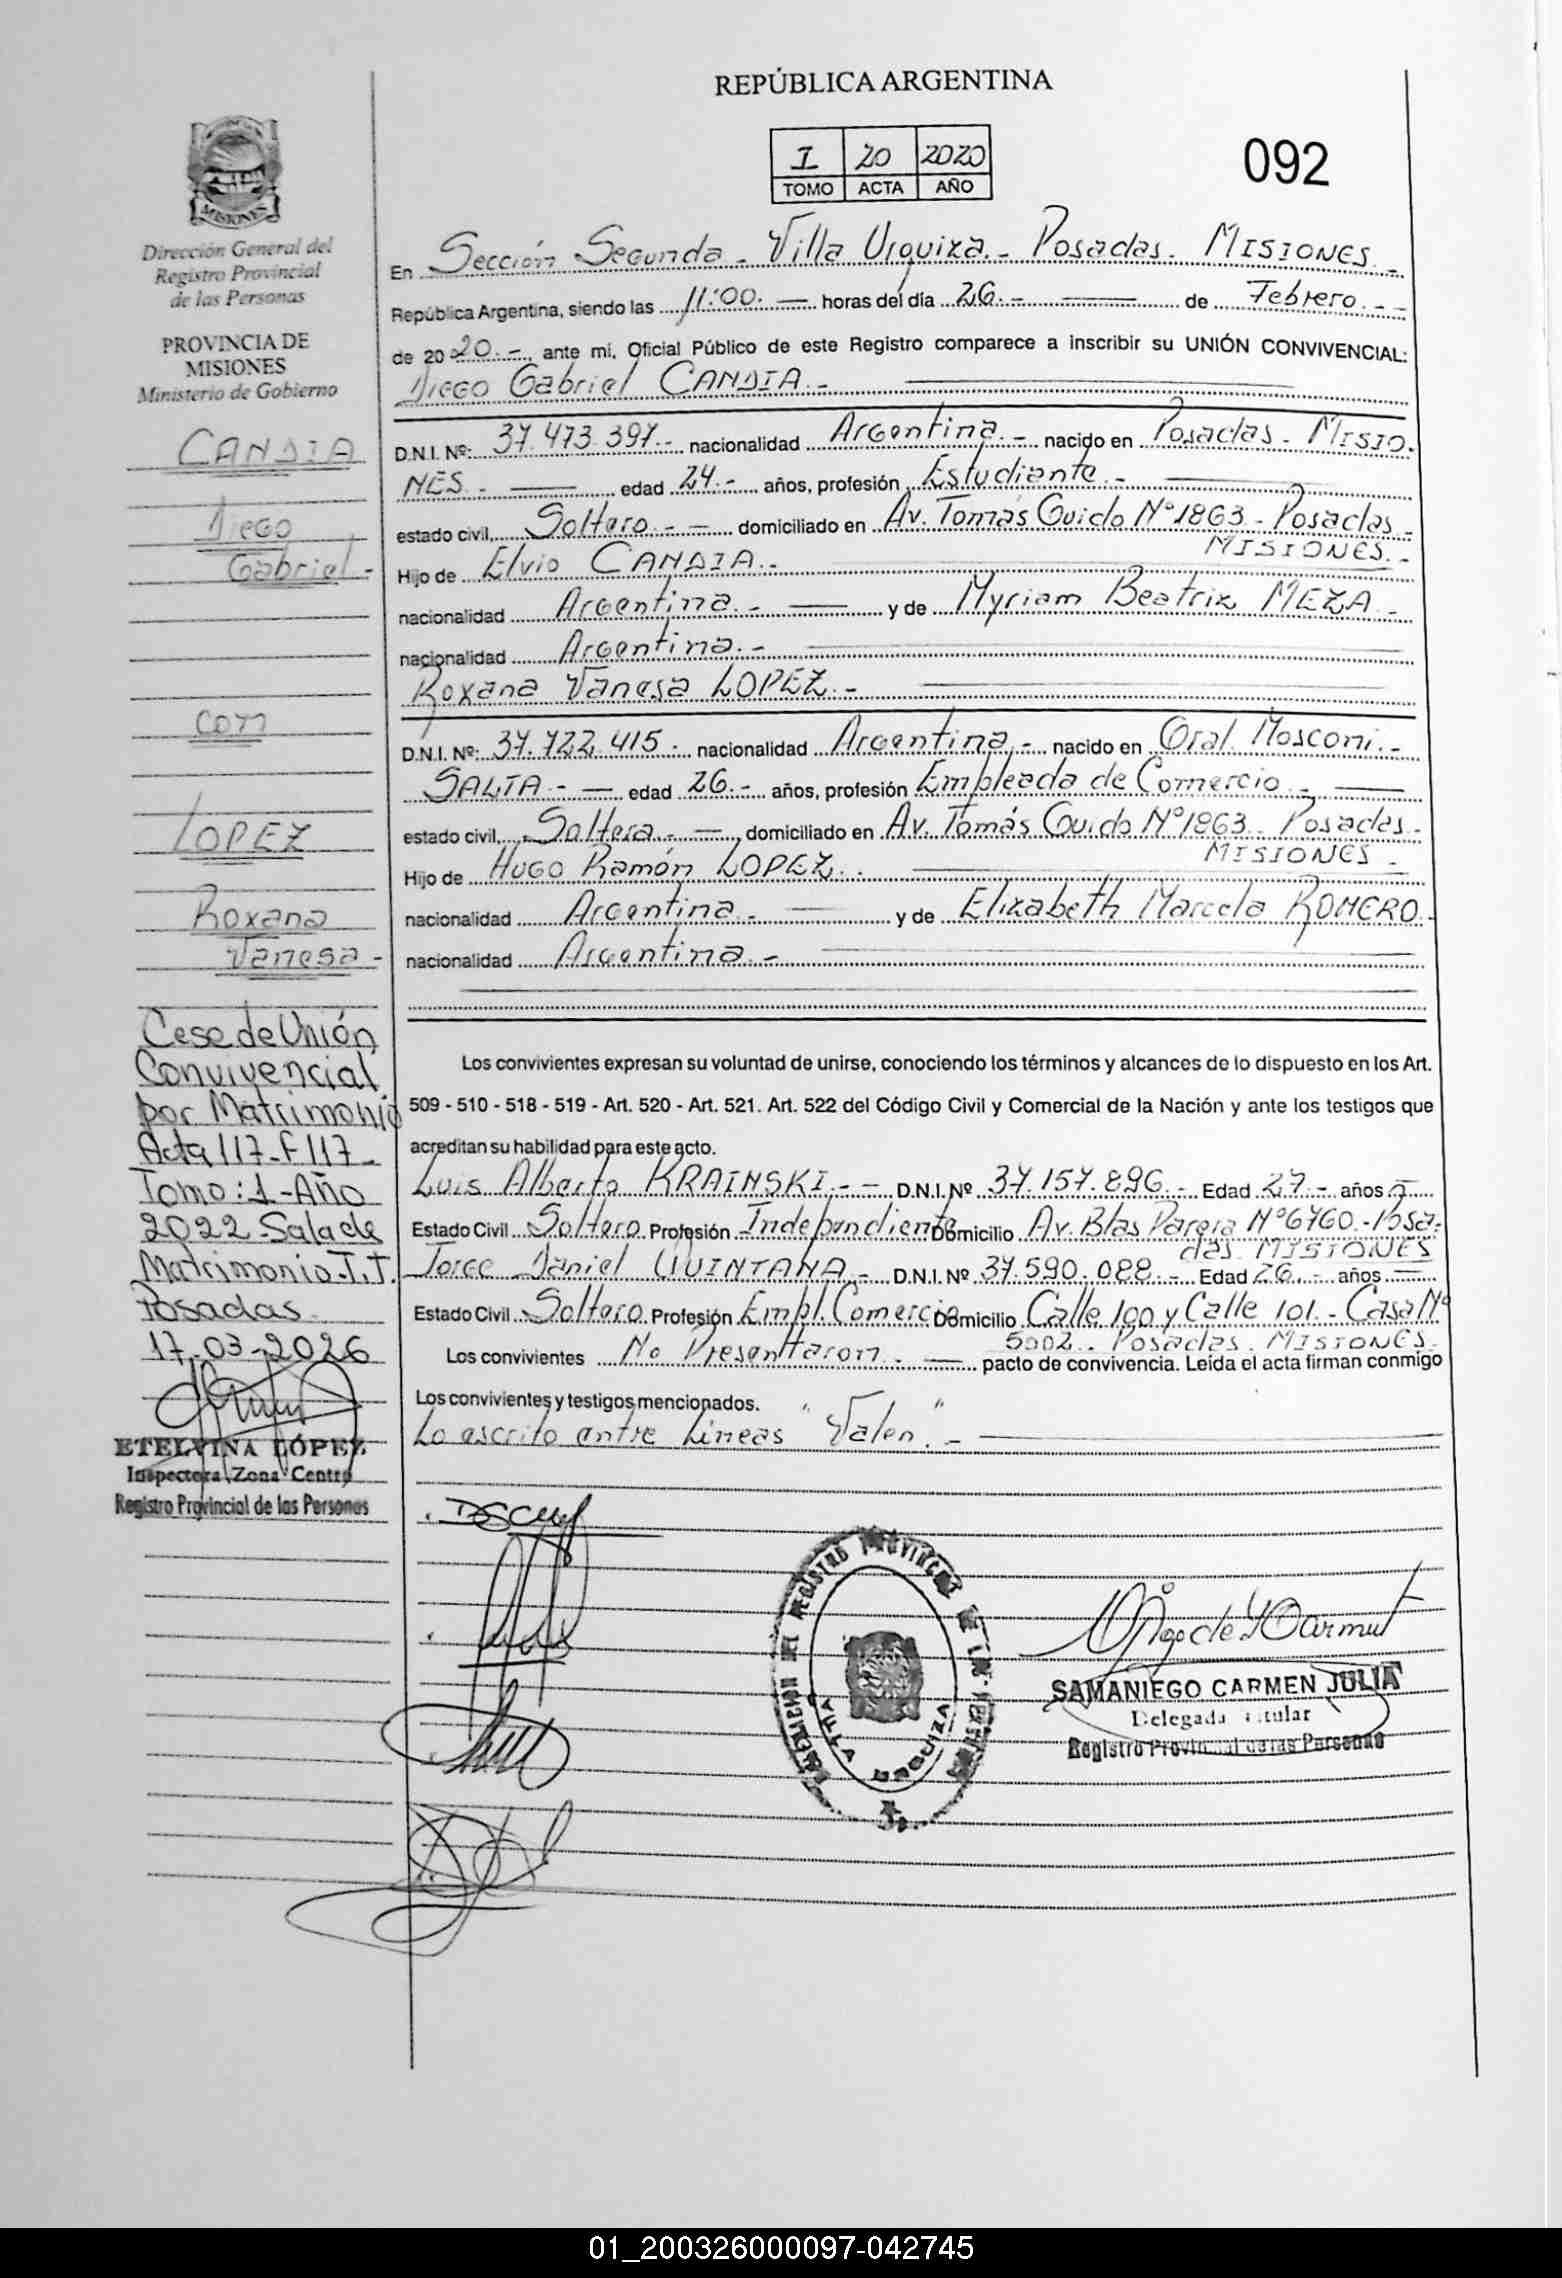 REPÚBLICA ARGENTINA
I 20 2020
TOMO ACTA AÑO
092
MISIONES
Dirección General del
Registro Provincial
de las Personas
PROVINCIA DE
MISIONES
Ministerio de Gobierno
CANDIA
Diego
Gabriel.-
con
LOPEZ
Roxana
Vanesa-
Cese de Unión
Convivencial
por Matrimonio
Acta 117-F 117-
Tomo: 1-Año
2022-Sala de
Matrimonio.T.T.
Posadas.
17-03-2026
ETELVINA LÓPEZ
Inspectora Zona Centro
Registro Provincial de las Personas
En Sección Segunda - Villa Urquiza.- Posadas. MISIONES.-
República Argentina, siendo las 11:00.- horas del día 26.- de Febrero.-
de 2020.-, ante mi, Oficial Público de este Registro comparece a inscribir su UNIÓN CONVIVENCIAL:
Diego Gabriel CANDIA.-
D.N.I. Nº: 37.473.397.- nacionalidad Argentina.- nacido en Posadas - MISIO.
NES.- edad 24.- años, profesión Estudiante.-
estado civil, Soltero.- domiciliado en Av. Tomás Guido Nº 1863 - Posadas -
MISIONES.-
Hijo de Elvio CANDIA.-
nacionalidad Argentina.- y de Myriam Beatriz MEZA.-
nacionalidad Argentina.-
Roxana Vanesa LOPEZ.-
D.N.I. Nº: 37.722.415. nacionalidad Argentina.- nacido en Gral. Mosconi.-
SALTA.- edad 26.- años, profesión Empleada de Comercio.-
estado civil, Soltera.- domiciliado en Av. Tomás Guido Nº 1863. Posadas.-
MISIONES -
Hijo de Hugo Ramón LOPEZ.
nacionalidad Argentina.- y de Elizabeth Marcela ROMERO.
nacionalidad Argentina.-
Los convivientes expresan su voluntad de unirse, conociendo los términos y alcances de lo dispuesto en los Art.
509 - 510 - 518 - 519 - Art. 520 - Art. 521. Art. 522 del Código Civil y Comercial de la Nación y ante los testigos que
acreditan su habilidad para este acto.
Luis Alberto KRAINSKI.- - D.N.I. Nº 37.157.896.- Edad 27.- años
Estado Civil Soltero Profesión Independiente Domicilio Av. Blas Parera Nº 6760.-Posa-
das. MISIONES
Jorge Daniel QUINTANA.- D.N.I. Nº 37.590.088.- Edad 26.- años
Estado Civil Soltero Profesión Empl. Comercio Domicilio Calle 100 y Calle 101.- Casa Nº
5002. Posadas. MISIONES.
Los convivientes No Presenttaron.- pacto de convivencia. Leida el acta firman conmigo
Los convivientes y testigos mencionados.
Lo escrito entre Líneas "Valen".-
SAMANIEGO CARMEN JULIA
Delegada Titular
Registro Provincial de las Personas
VILLA URQUIZA
01_200326000097-042745